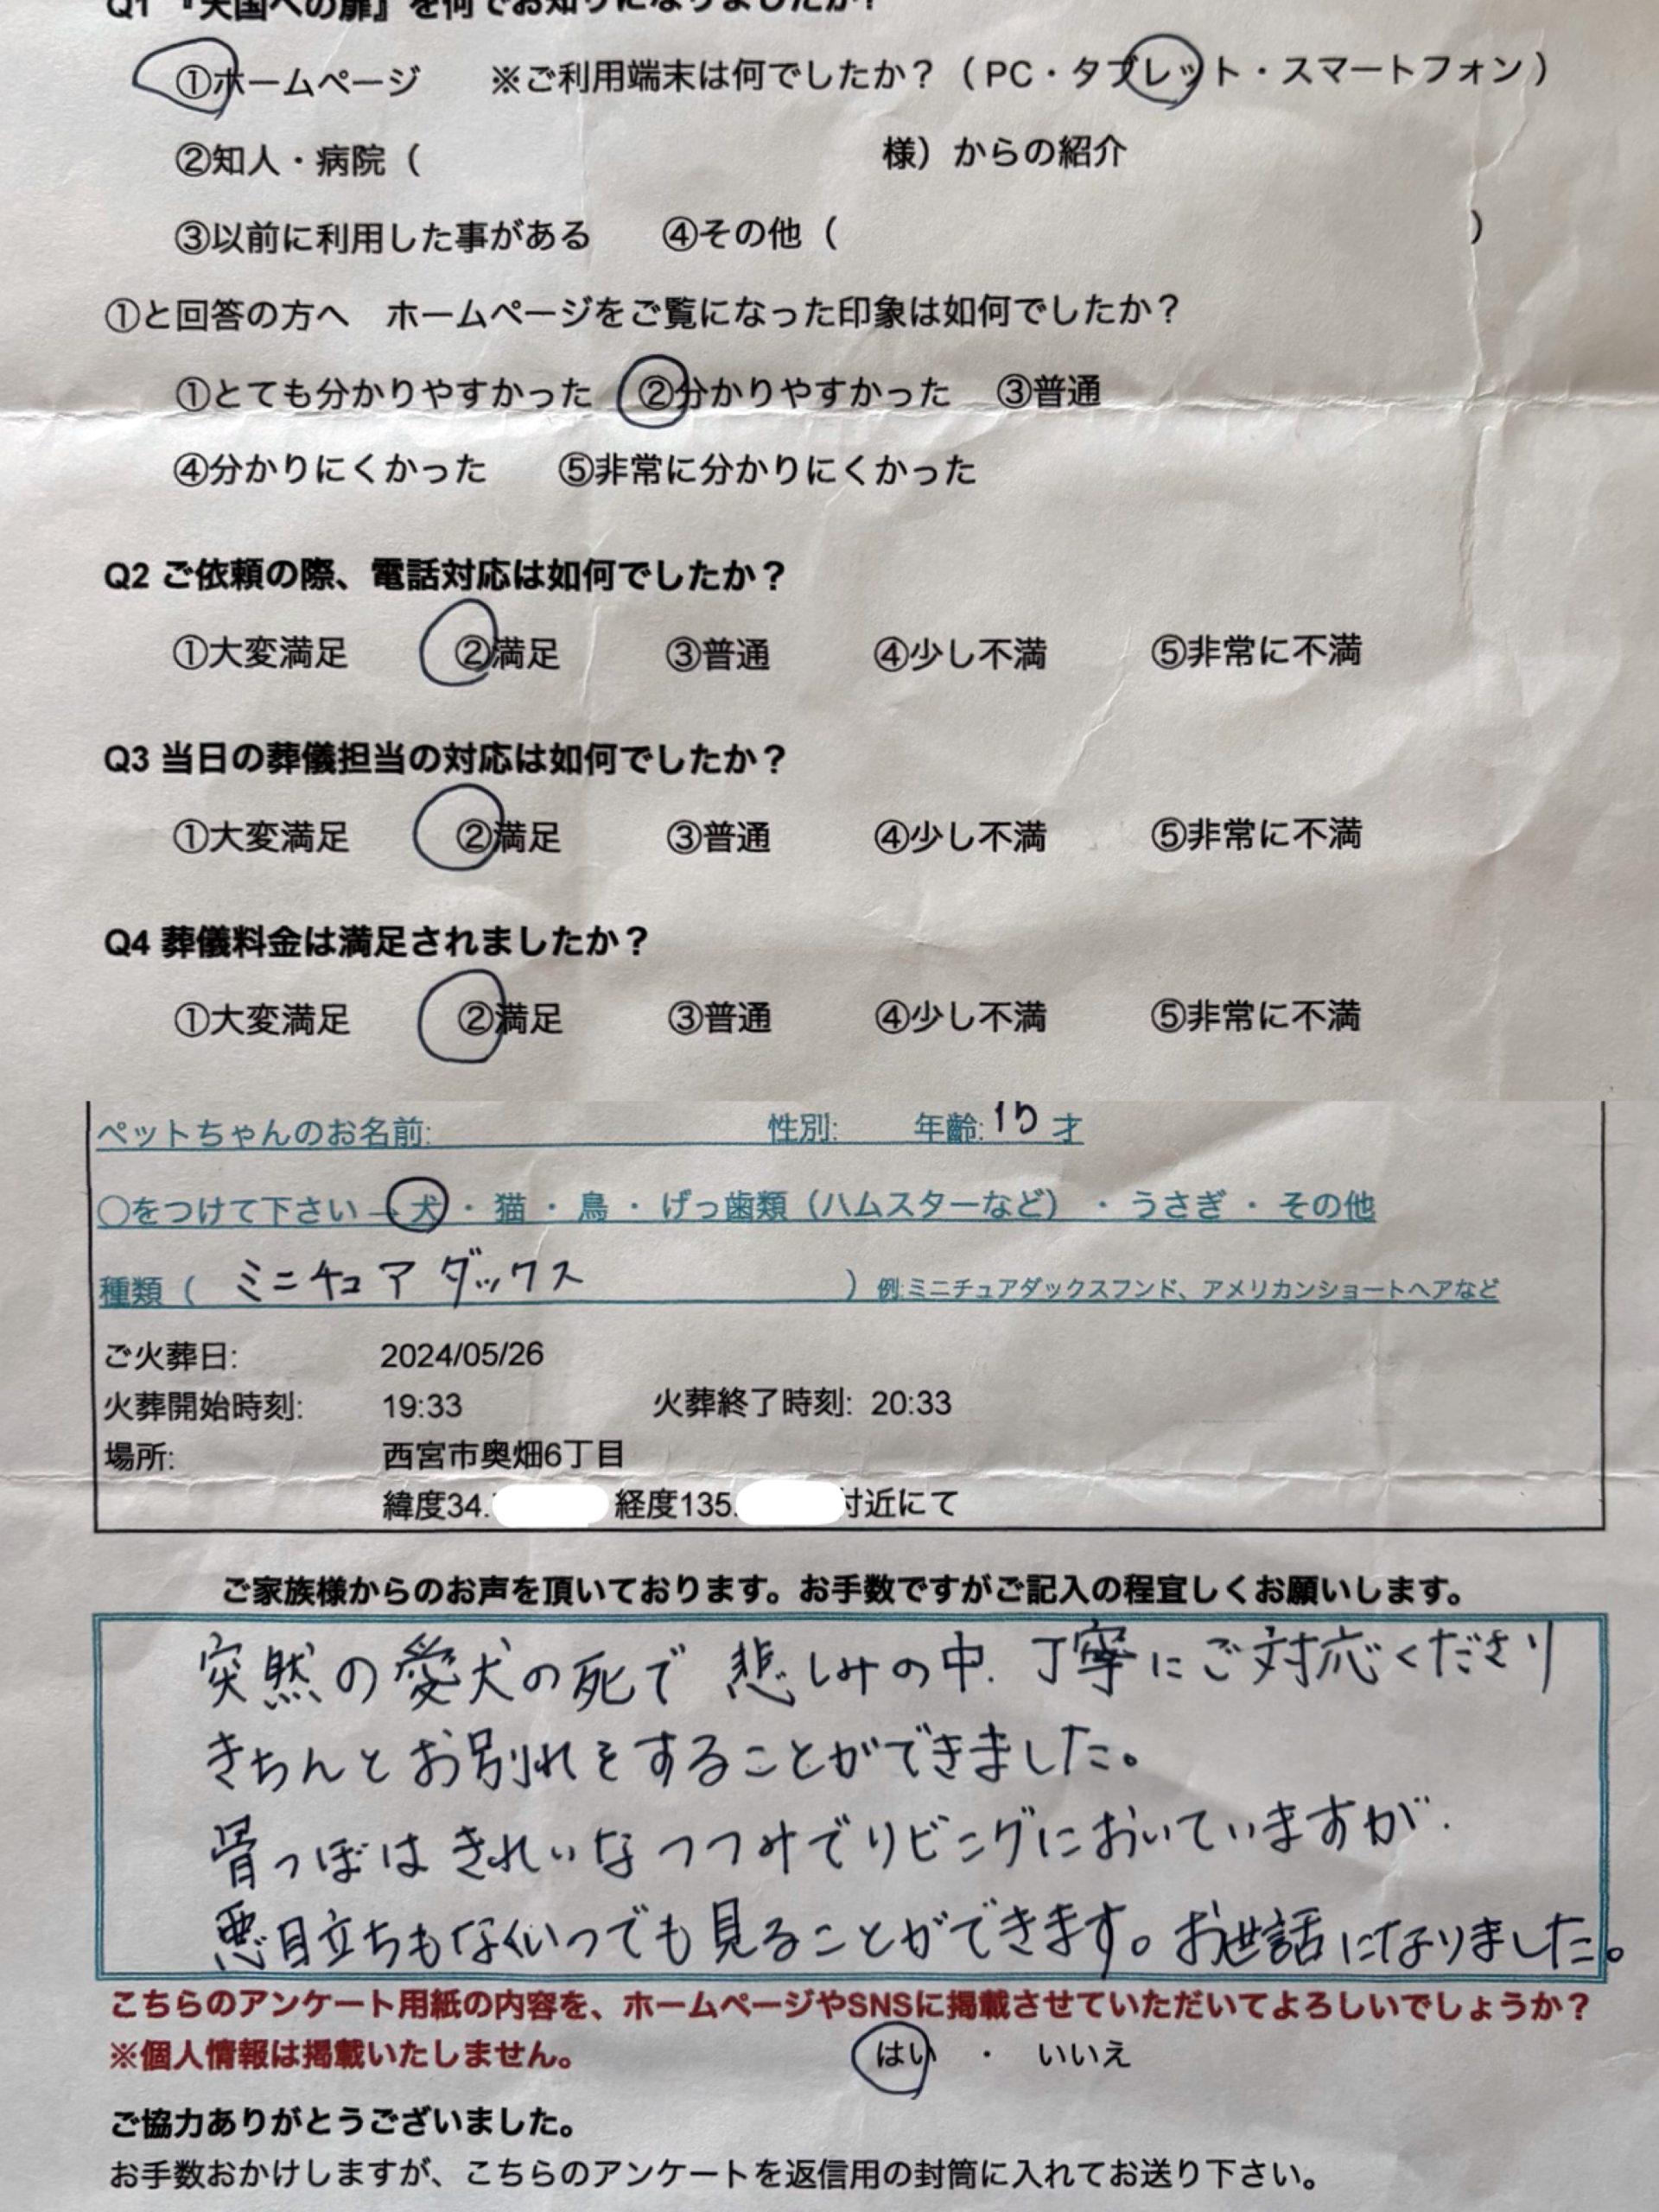 Q1 『天国への扉』を何でお知りになりましたか？
①ホームページ ※ご利用端末は何でしたか？（PC・タブレット・スマートフォン）
②知人・病院（ 様）からの紹介
③以前に利用した事がある ④その他（ ）
①と回答の方へ ホームページをご覧になった印象は如何でしたか？
①とても分かりやすかった ②分かりやすかった ③普通
④分かりにくかった ⑤非常に分かりにくかった
Q2 ご依頼の際、電話対応は如何でしたか？
①大変満足 ②満足 ③普通 ④少し不満 ⑤非常に不満
Q3 当日の葬儀担当の対応は如何でしたか？
①大変満足 ②満足 ③普通 ④少し不満 ⑤非常に不満
Q4 葬儀料金は満足されましたか？
①大変満足 ②満足 ③普通 ④少し不満 ⑤非常に不満
ペットちゃんのお名前: 性別: 年齢: 才
○をつけて下さい→犬・猫・鳥・げっ歯類（ハムスターなど）・うさぎ・その他
種類（ミニチュアダックス）例:ミニチュアダックスフンド、アメリカンショートヘアなど
ご火葬日: 2024/05/26
火葬開始時刻: 19:33 火葬終了時刻: 20:33
場所: 西宮市奥畑6丁目
緯度34. 経度135. 付近にて
ご家族様からのお声を頂いております。お手数ですがご記入の程宜しくお願いします。
突然の愛犬の死で悲しみの中、丁寧にご対応くださり
きちんとお別れをすることができました。
骨つぼはきれいなつつみでリビングにおいていますが、
悪目立ちもなくいつでも見ることができます。お世話になりました。
こちらのアンケート用紙の内容を、ホームページやSNSに掲載させていただいてよろしいでしょうか？
※個人情報は掲載いたしません。 はい ・ いいえ
ご協力ありがとうございました。
お手数おかけしますが、こちらのアンケートを返信用の封筒に入れてお送り下さい。